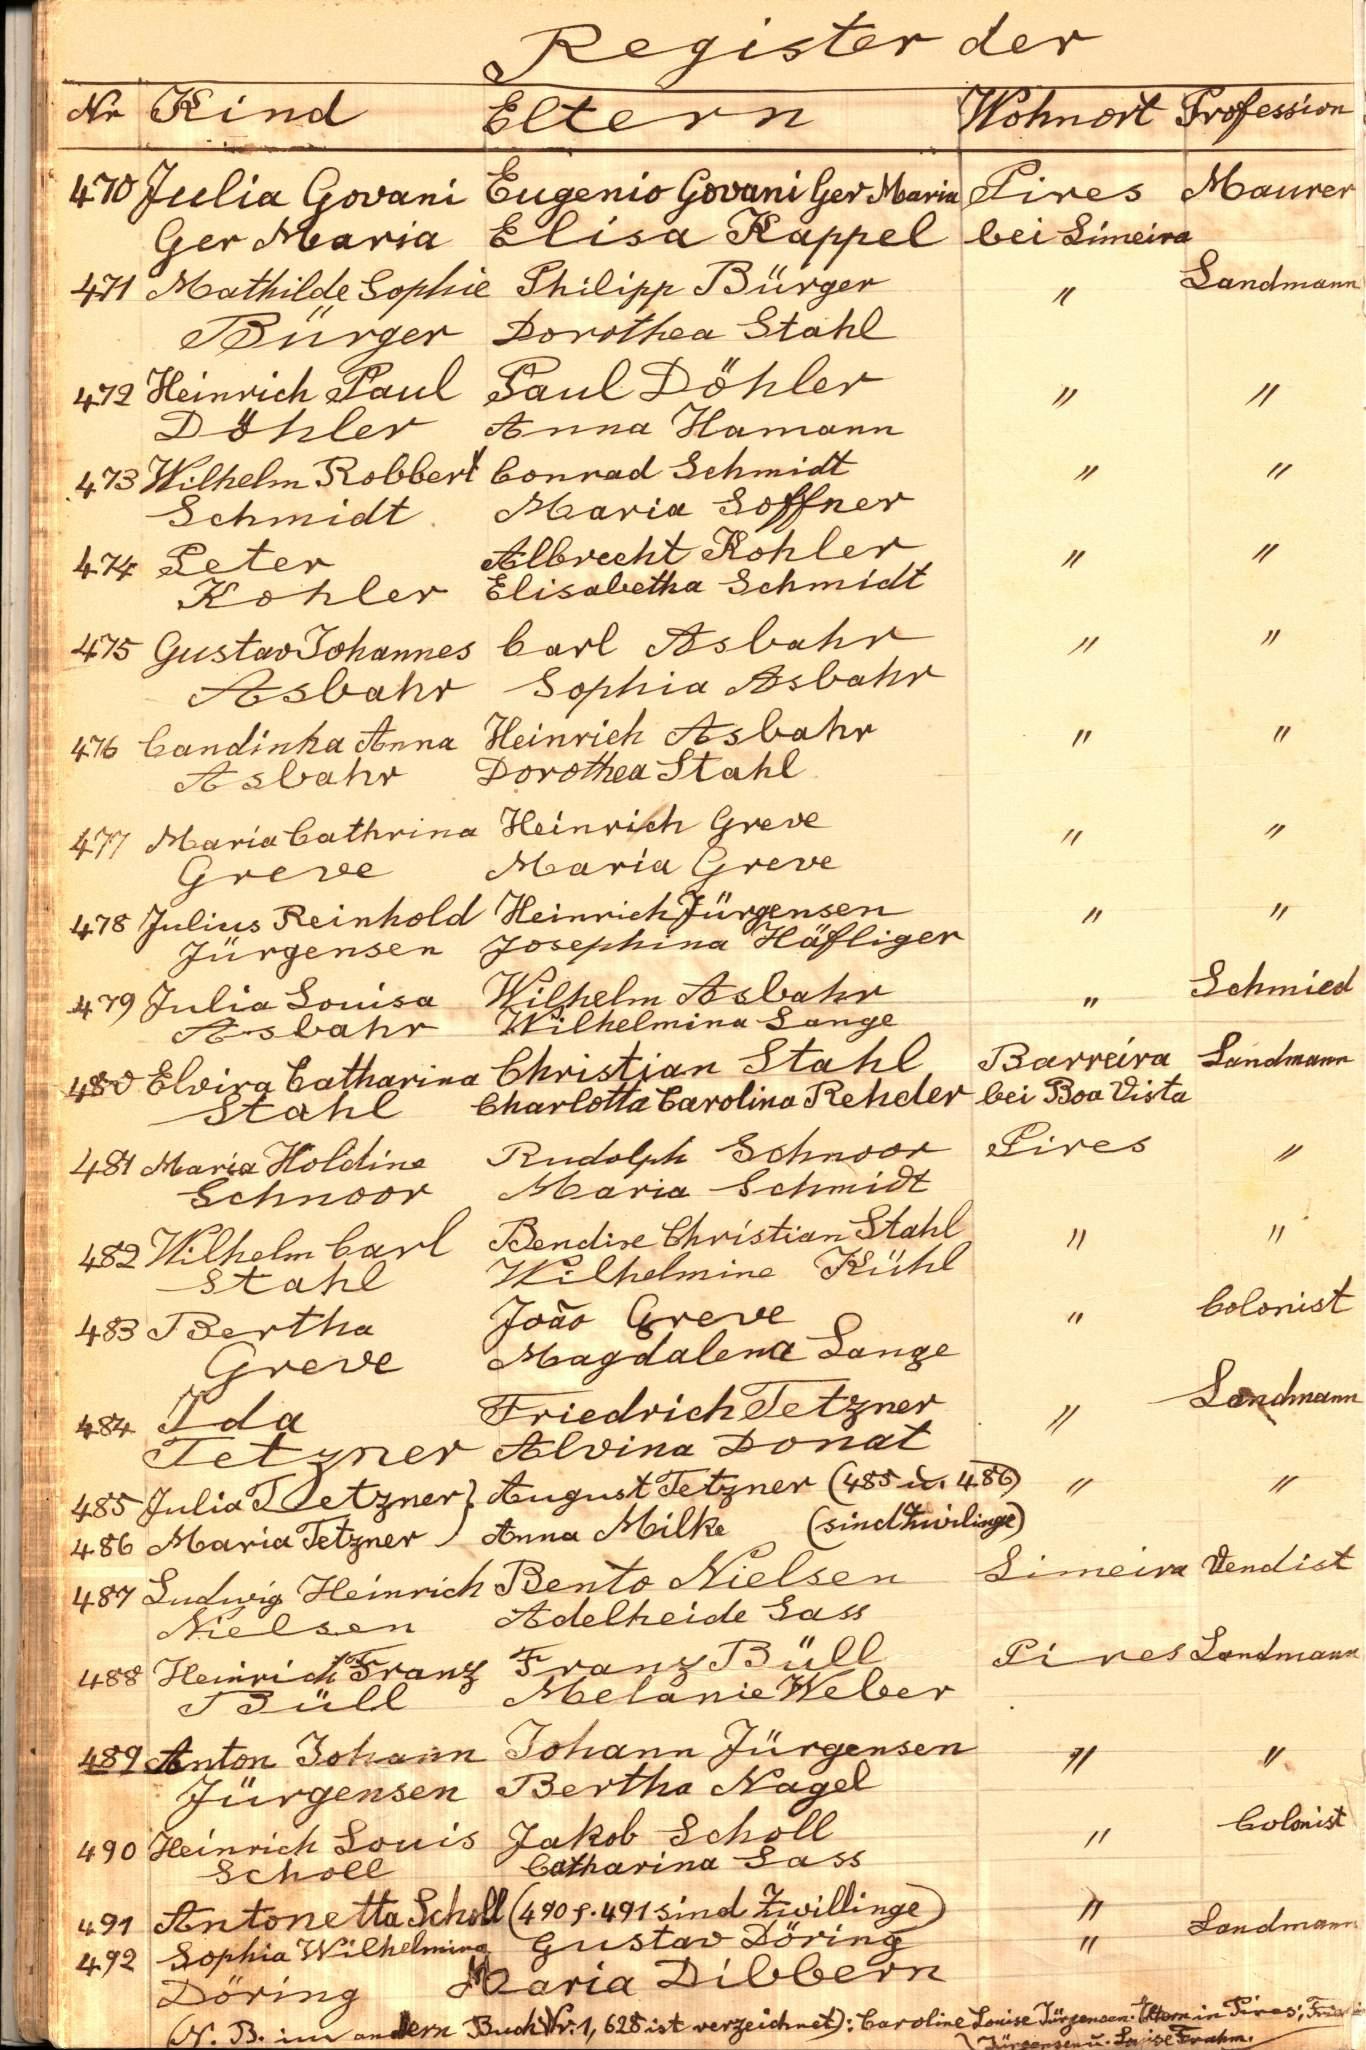 Register der
Nr Kind Eltern Wohnort Profession
470 Julia Govani Eugenio Govani Ger Maria Pires Maurer
Ger Maria Elisa Kappel bei Limeira
471 Mathilde Sophie Philipp Bürger " Landmann
Bürger Dorothea Stahl
472 Heinrich Paul Paul Döhler " "
Döhler Anna Hamann
473 Wilhelm Robbert Conrad Schmidt " "
Schmidt Maria Soffner
474 Peter Albrecht Kohler " "
Kohler Elisabetha Schmidt
475 Gustav Johannes Carl Asbahr " "
Asbahr Sophia Asbahr
476 Candinha Anna Heinrich Asbahr " "
Asbahr Dorothea Stahl
477 Maria Cathrina Heinrich Greve " "
Greve Maria Greve
478 Julius Reinhold Heinrich Jürgensen " "
Jürgensen Josephina Häfliger
479 Julia Louisa Wilhelm Asbahr " Schmied
Asbahr Wilhelmina Lange
480 Elvira Catharina Christian Stahl Barreira Landmann
Stahl Charlotta Carolina Rehder bei Boa Vista
481 Maria Holdine Rudolph Schnoor Pires "
Schnoor Maria Schmidt
482 Wilhelm Carl Bendixe Christian Stahl " "
Stahl Wilhelmine Kühl
483 Bertha João Greve " Colonist
Greve Magdalena Lange
484 Ida Friedrich Tetzner " Landmann
Tetzner Alvina Donat
485 Julia Tetzner } August Tetzner (485 u. 486) " "
486 Maria Tetzner Anna Milke (sind Zwilinge)
487 Ludwig Heinrich Bento Nielsen Limeira Vendist
Nielsen Adelheide Sass
488 Heinrich Franz Franz Büll Pires Landmann
Büll Melanie Weber
489 Anton Johann Johann Jürgensen " "
Jürgensen Bertha Nagel
490 Heinrich Louis Jakob Scholl " Colonist
Scholl Catharina Sass
491 Antonetta Scholl (490 &. 491 sind Zwillinge) "
492 Sophia Wilhelmina Gustav Döring " Landmann
Döring Maria Dibbern
(N. B. im andern Buch Nr. 1, 628 ist verzeichnet): Caroline Louise Jürgensen. Eltern in Pires;
Jürgensen u. Luise Frahm.